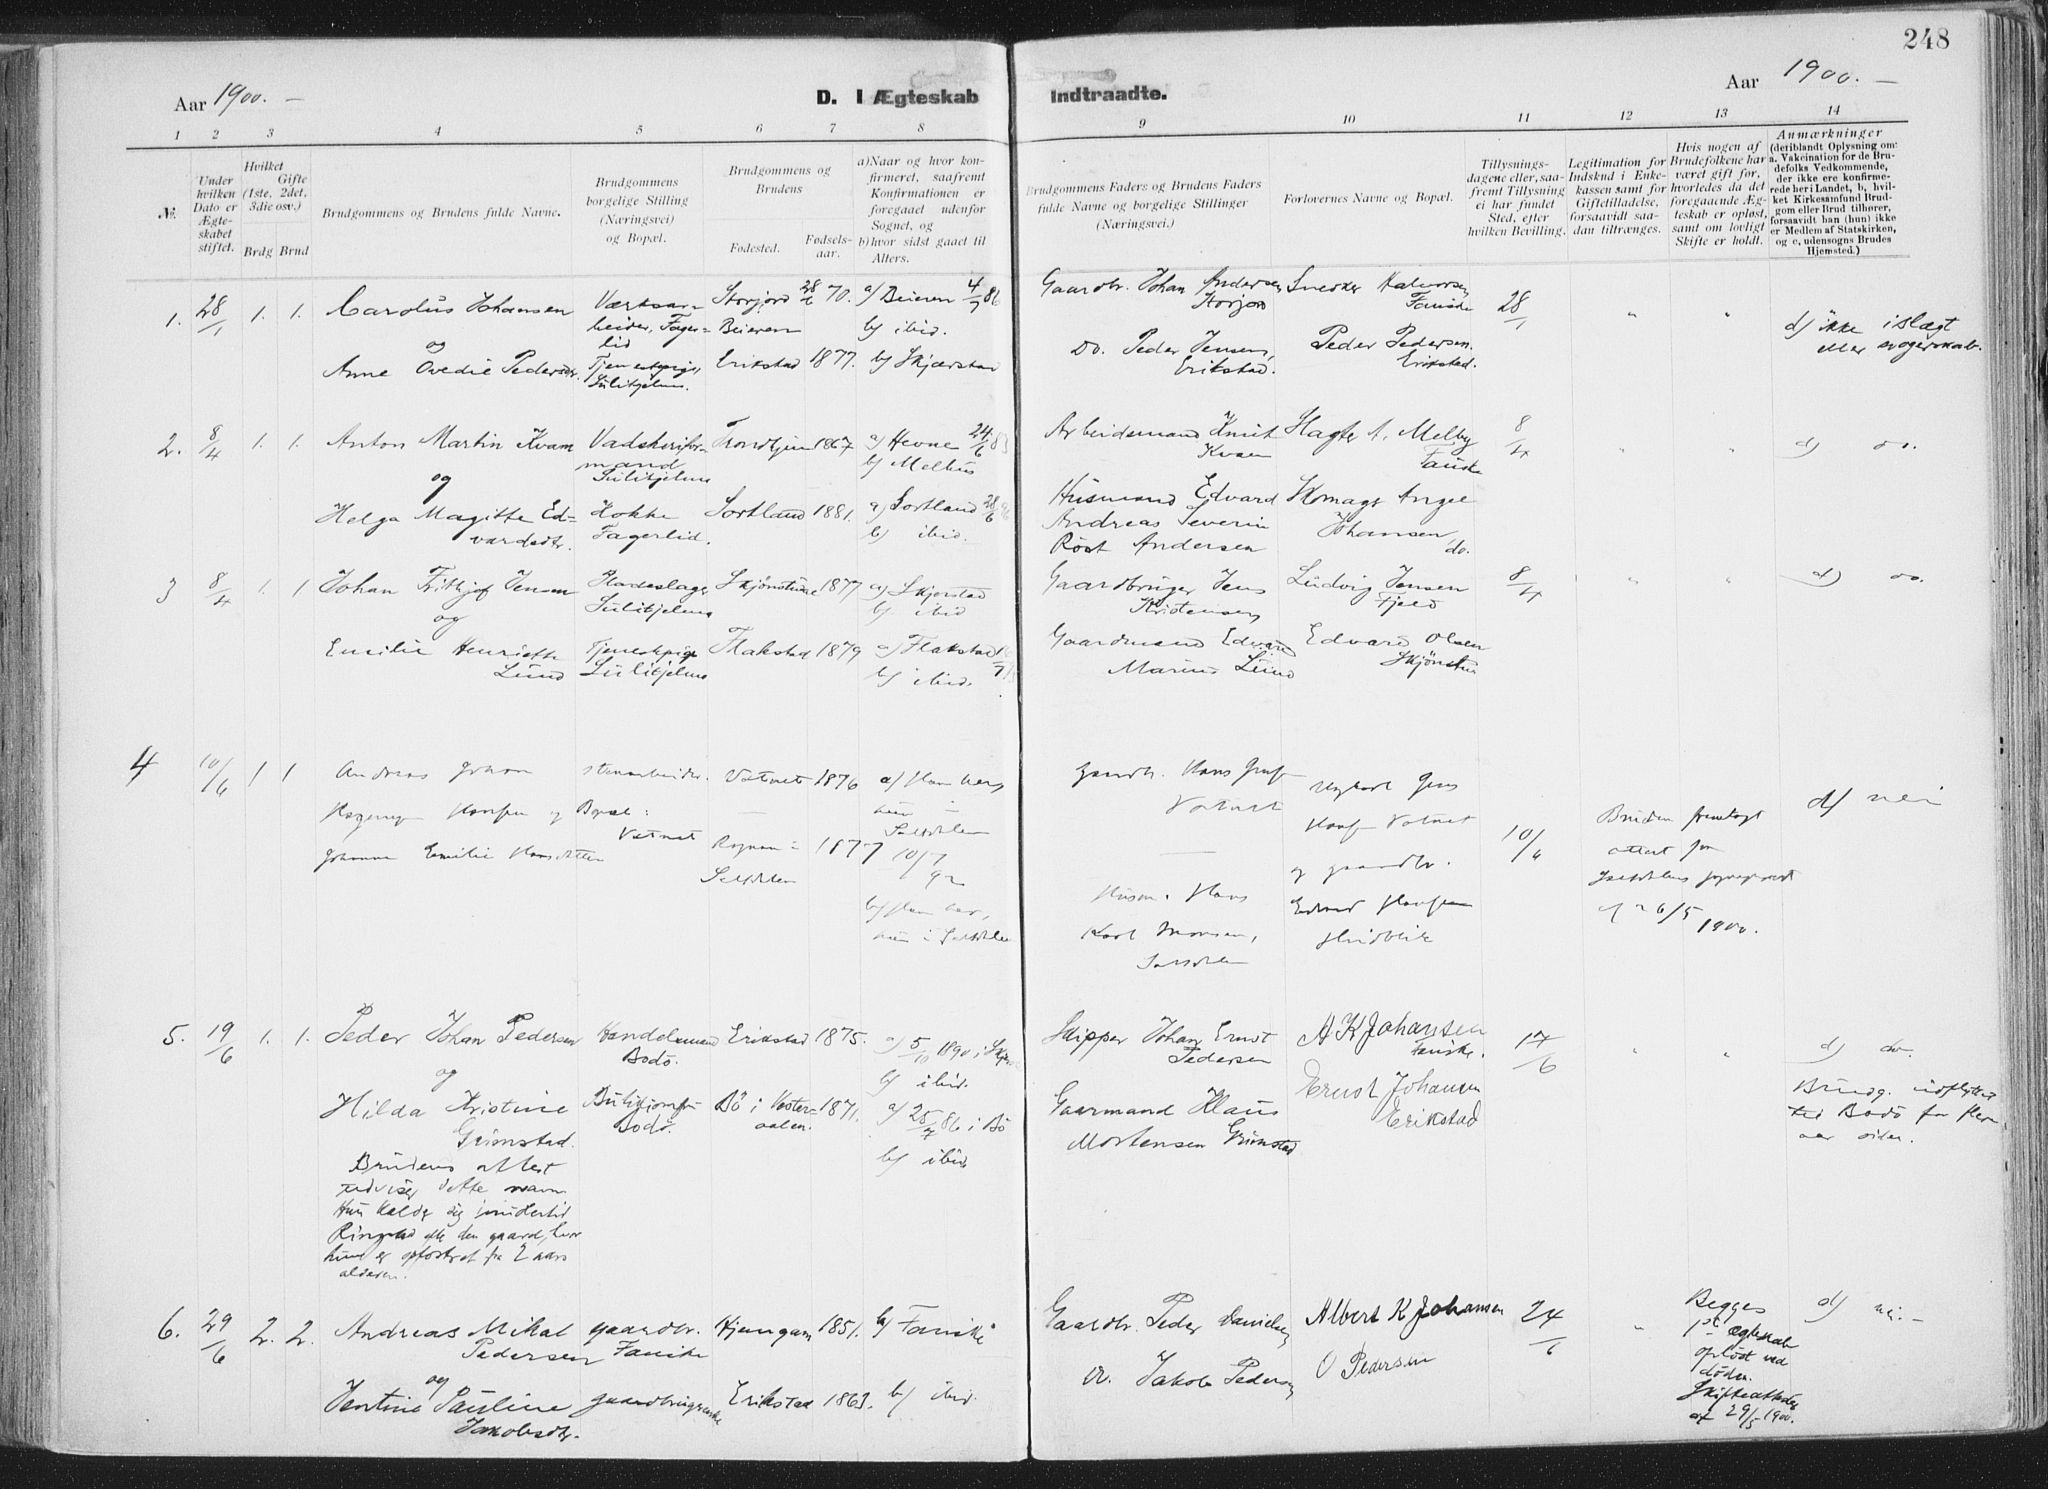 248
Aar 1900. –
D. I Ægteskab Indtraadte.
Aar 1900. –
1 2 3 4 5 6 7 8 9 10 11 12 13 14
№.
Under hvilken Dato er Ægteskabet stiftet.
Hvilket Gifte (1ste, 2det, 3die osv.)
Brdg Brud
Brudgommens og Brudens fulde Navne.
Brudgommens borgelige Stilling (Næringsvei) og Bopæl.
Brudgommens og Brudens
Fødested. Fødselsaar.
a) Naar og hvor konfirmeret, saafremt Konfirmationen er foregaaet udenfor Sognet, og b) hvor sidst gaaet til Alters.
Brudgommens Faders og Brudens Faders fulde Navne og borgelige Stillinger (Næringsvei.)
Forlovernes Navne og Bopæl.
Tillysningsdagene eller, saafremt Tillysning ei har fundet Sted, efter hvilken Bevilling.
Legitimation for Indskud i Enkekassen samt for Giftetilladelse, forsaavidt saadan tiltrænges.
Hvis nogen af Brudefolkene har været gift før, hvorledes da det foregaaende Ægteskab er opløst, samt om lovligt Skifte er holdt.
Anmærkninger (deriblandt Oplysning om: a. Vakcination for de Brudefolks Vedkommende, der ikke ere konfirmerede her i Landet, b, hvilket Kirkesamfund Brudgom eller Brud tilhører, forsaavidt han (hun) ikke er Medlem af Statskirken, og c, udensogns Brudes Hjemsted.)
1. 28/1 1. 1.
Carolus Johansen
og
Anne Ovedie Pedersdtr.
Værksarbeider, Fagerlid
Tjenestepige, Sulitjelma.
Storjord Beieren 28/6 70.
Erikstad 1877.
a) Beieren 4/7 86
b) ibid.
b) Skjerstad
Gaardbr. Johan Andersen Storjord
Do. Peder Jensen, Erikstad.
Snedker Halvorsen Fauske
Peder Pedersen. Erikstad.
28/1
" "
d) ikke i slægt eller svogerskab.
2. 8/4 1. 1.
Anton Martin Kvam
og
Helga Magitta Edvardsdtr.
Vadskeriformand Sulitjelma
Kokke Fagerlid.
Trondhjem 1867
Sortland 1881.
a) Hevne 24/6 83
b) Melhus
a) Sortland 28/6 96
b) ibid.
Arbeidsmand Knut Kvam
Husmand Edvard Andreas Severin Röst Andersen
Hagb. A. Melby Fauske
Skomager Angel Johansen, do.
8/4
" "
d) do.
3 8/4 1. 1
Johan Frithjof Jensen
og
Emilie Henriette Lund
Pladeslager Sulitjelma
Tjenestepige Sulitjelma
Skjønstuene 1877
Flakstad 1879
a) Skjerstad
b) ibid
a) Flakstad
b) ibid.
Gaardbruger Jens Kristensen
Gaardmand Edvard Marius Lund
Ludvig Jensen Fjeld
Edvard Olsen Skjönstu
8/4
" "
d) do.
4 10/6 1 1
Andreas Johan
Hansen og
Johanne Emilie Hansdatter
stenarbeider.
Bopæl: Vatnet
Vatnet 1876
Rognan i Saltdalen 1877
a) Han her, hun i Saltdalen 10/7 92
b) Han her, hun i Saltdalen
Gaardbr. Hans
Vatnet
Husm. Hans
Karl Monsen, Saltdalen
Jens
Hansen Vatnet
og gaardbr.
Edvard Hansen
10/6
Bruden fremlagt attest fra Saltdalens sogneprest af 26/5 1900.
d) nei
5. 19/6 1. 1.
Peder Johan Pedersen
og
Hilda Kristine Grimstad.
Brudens attest udviser dette navn
Hun kalder sig imidlertid
Ringstad efter den gaard, hvor
hun er opfostret fra 2 aars
alderen.
Handelsmand Bodö.
Butikjomfru Bodö.
Erikstad 1875.
Bö i Vesteraalen. 1871.
a) 5/10 1890 i
b) ibid.
a) 25/7 86 i Bö
b) ibid
Skipper Johan Ernst Pedersen
Gaarmand Klaus Mortensen Grimstad
A K Johansen Fauske.
Ernst Johansen Erikstad
17/6
" "
d) do.
Brudg. indflyttet
ted Bodö for flere
aar siden.
6. 29/6 2. 2.
Andreas Mikal Pedersen
og
Jentine Pauline Jakobsdtr.
gaardbr. Fauske
gaardbrugerenke
1851.
Erikstad 1863.
b) Fauske
b) ibid.
Gaardbr. Peder Danielsen
do. Jakob Pedersen
Albert K Johansen
O Pedersen
24/6
"
Begges
1ste ægteskab
oplöst ved
döden.
Skifteattester
af 29/5 1900.
d) nei. –